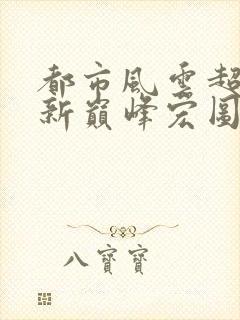 都市風雲超
新巔峰宏圖
八寶寶